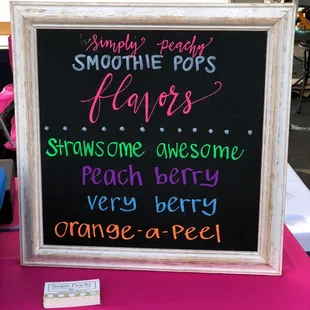 simply peachy
SMOOTHIE POPS
flavors
Strawsome awesome
Peach berry
very berry
orange-a-peel
Simply Peachy